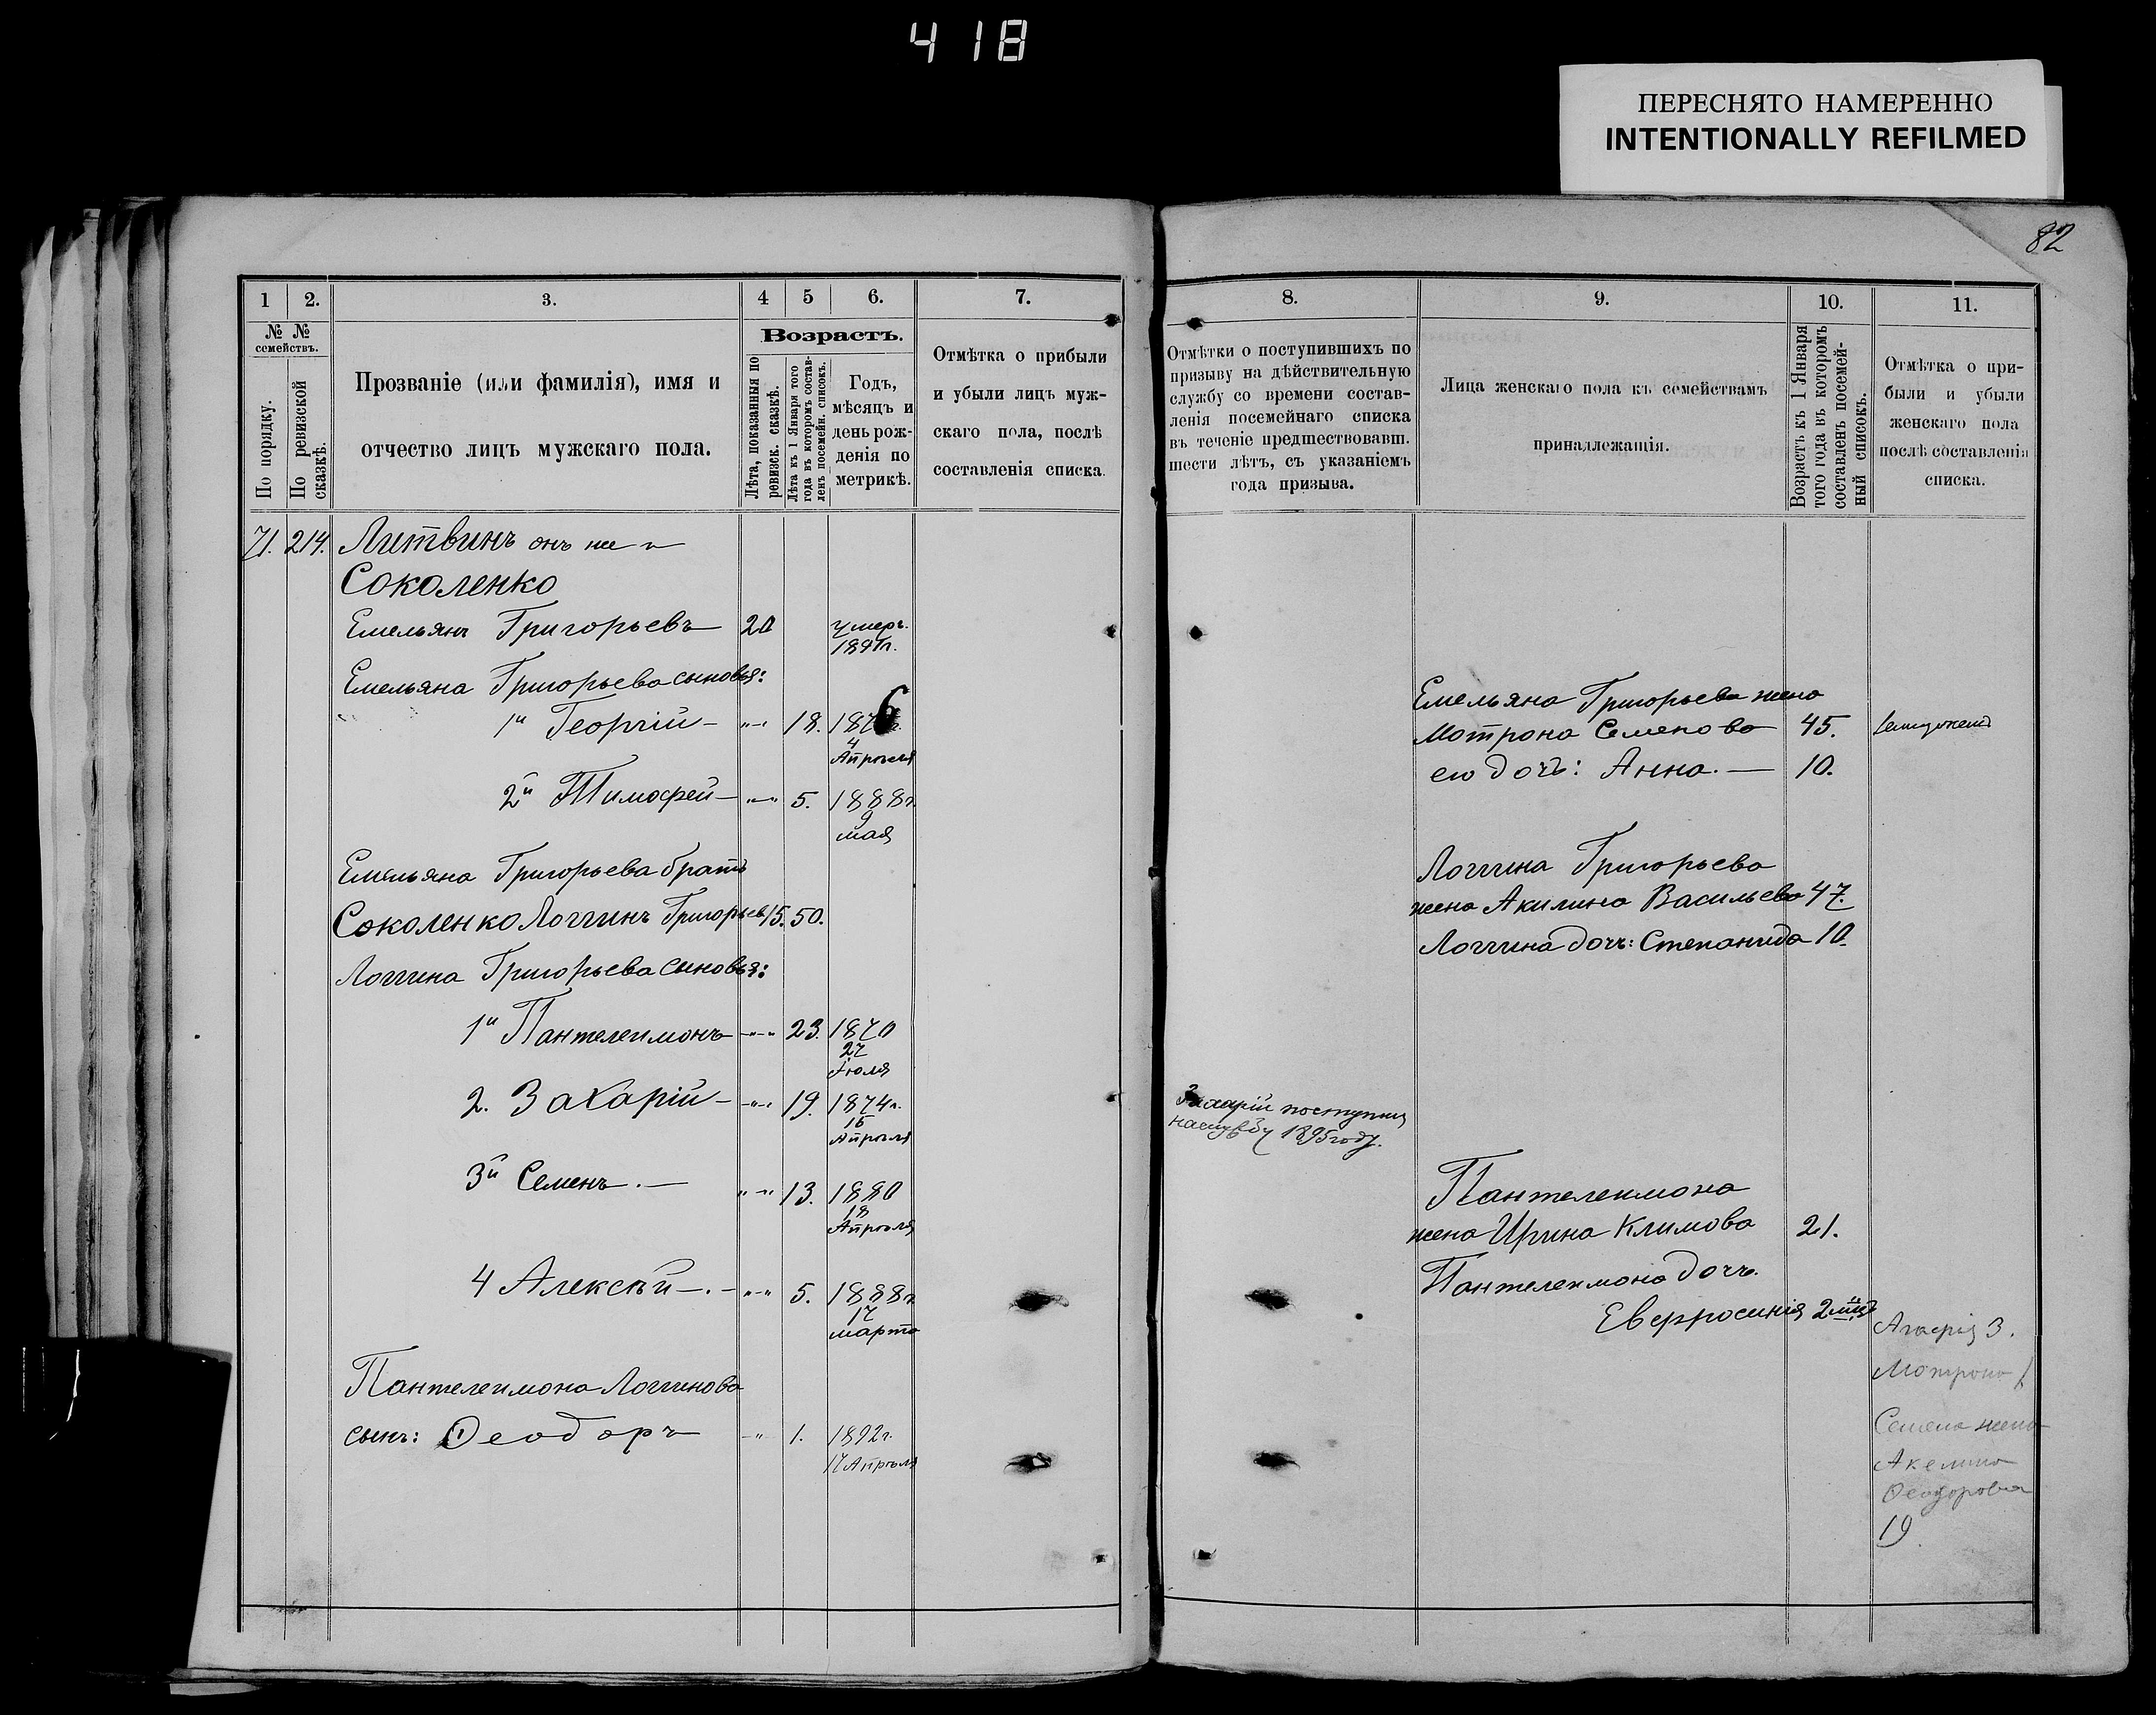 418
ПЕРЕСНЯТО НАМЕРЕННО
INTENTIONALLY REFILMED
82
1 2. 3. 4 5 6. 7.
№ № семействъ.
По порядку.
По ревизской сказкѣ.
Прозваніе (или фамилія), имя и
отчество лицъ мужскаго пола.
Возрастъ.
Лѣта, показанныя по ревизск. сказкѣ.
Лѣта къ 1 Января того года въ которомъ составленъ посемейн. списокъ.
Годъ,
мѣсяцъ и
день рож-
денія по
метрикѣ.
Отмѣтка о прибыли
и убыли лицъ муж-
скаго пола, послѣ
составленія списка.
71. 214. Литвинъ онъ же и
Соколенко
Емельянъ Григорьевъ 20 умеръ.
1891г.
Емельяна Григорьева сыновья:
1й Георгій — 18. 1876г.
4
Апрѣля
2й Тимофей — 5. 1888г.
9
мая
Емельяна Григорьева братъ
Соколенко Логгинъ Григорьев. 15. 50.
Логгина Григорьева сыновья:
1й Пантелеимонъ 23. 1870
27
Іюля
2. Захарій — 19. 1874г.
15
Апрѣля
3й Семенъ. — 13. 1880
18
Апрѣля
4 Алексѣй —.— 5. 1888г.
17
марта
Пантелеимона Логгинова
сынъ: Ѳеодоръ 1. 1892г.
17 Апрѣля
8. 9. 10. 11.
Отмѣтки о поступившихъ по
призыву на дѣйствительную
службу со времени состав-
ленія посемейнаго списка
въ теченіе предшествовавш.
шести лѣтъ, съ указаніемъ
года призыва.
Лица женскаго пола къ семействамъ
принадлежащія.
Возрастъ къ 1 Января
того года въ которомъ
составленъ посемей-
ный списокъ.
Отмѣтка о при-
были и убыли
женскаго пола
послѣ составленія
списка.
Емельяна Григорьева жена
Мотрона Семенова 45.
его дочь: Анна. — 10.
Логгина Григорьева
жена Акилина Васильева 47.
Логгина дочь: Степанида 10.
Захарій поступилъ
на службу 1895 году.
Пантелеимона
жена Ирина Климова 21.
Пантелеимона дочь.
Еверросинія 2 мѣс.
3.
Мотрона
Семена жена
Акелина
Ѳеодорова
19